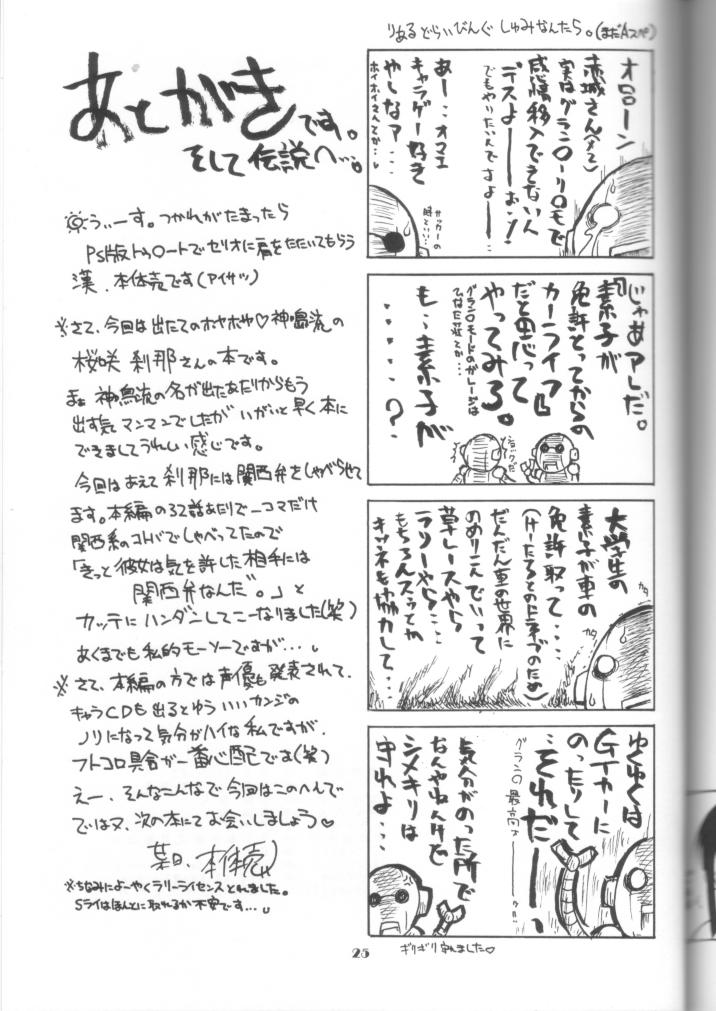 りある どらいびんぐ しゅみなんたら。(まだAスペ)
あとがきです。
そして伝説へ…。
うぃーす。つかれがたまったら
PS版トゥ○ートでセリオに肩をたたいてもらう
漢、本体売です(アイサツ)
※さて、今回は出たてのホヤホヤ♡神鳴流の
桜咲 刹那さんの本です。
まぁ 神鳴流の名が出たあたりからもう
出す気マンマンでしたが いがいと早く本に
できましてうれしい感じです。
今回はあえて刹那には関西弁をしゃべらせて
ます。本編の37話あたりで一コマだけ
関西系のコトバでしゃべってたので
「きっと彼女は気を許した相手には
関西弁なんだ。」と
カッテにハンダンしてこーなりました(笑)
あくまでも私的モーソーですが…。
※さて、本編の方では声優も発表されて、
キャラCDも出るとゆういいカンジの
ノリになって気分がハイな私ですが、
フトコロ具合が一番心配です(笑)
えー、そんなこんなで今回はこのへんで
ではヌ、次の本にてお会いしましょう♡
本体売
※ちなみによーやくラリーライセンスとれました。
Sライはほんとに取れるか不安です…。
オローン
赤城さん(×2)
実はグラン○ーリ○モで
感情移入できない人
デスよーーおっ!
でもやりたいんですよーー
あー…オマエ
キャラゲー好き
やしなァ…
ホイホイさんてか…
サッカーの
時といい…
「じゃあアレだ。
素子が
免許とってからの
カーライフ」
だと思って
やってみろ。
グラン○モードのガレージは
ひなた荘てか…
も、、素子が
・・・・・?
ショックだ
大学生の
素子が車の
免許取って…
(けーたろとのドライブのため)
だんだん車の世界に
のめりこんでいって
草レースやら
ラリーやら…
もちろんスゥとか
キツネも協力して…
カタ
カタ
ゆくゆくは
GTカーに
のったりして
…それだーーっ
グラン○最高ォーー
気分がのった所で
なんやねんけど
シメキリは
守れよ…
ギリギリ守れました♡
25